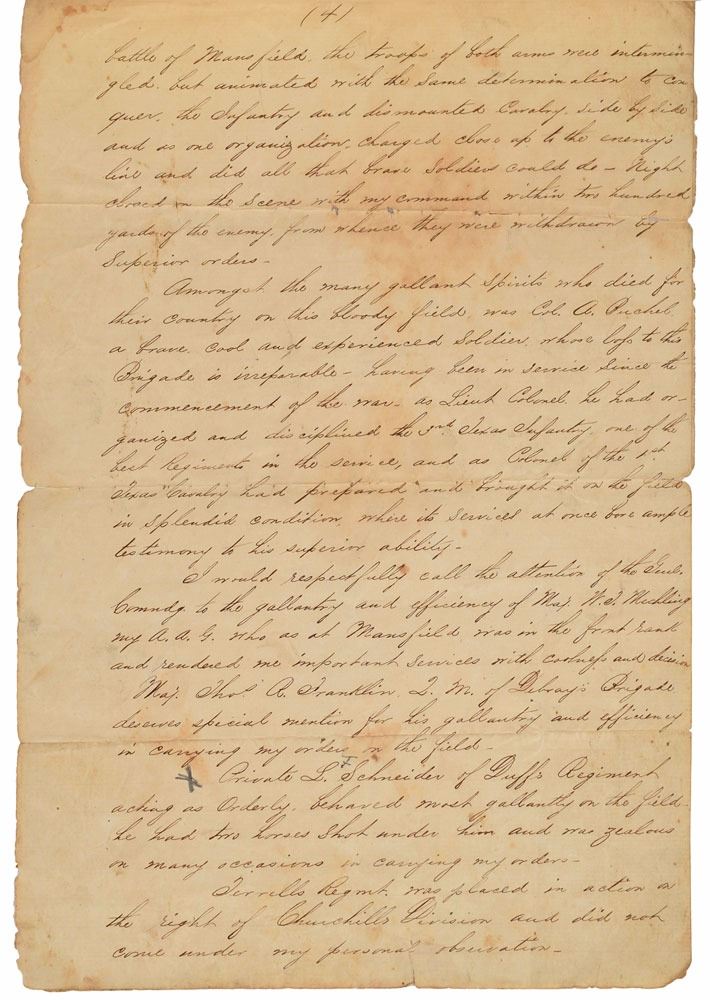 (4)
battle of Mansfield. the troops of both arms were intermin-
gled. but animated with the same determination to con
quer. the Infantry and dismounted Cavalry. side by side
and as one organization, charged close up to the enemy's
line and did all that brave Soldiers could do - Night
closed on the scene with my command within two hundred
yards of the enemy, from whence they were withdrawn by
Superior orders -
Amongst the many gallant Spirits who died for
their country on this bloody field, was Col. A. Buchel
a brave, cool and experienced Soldier, whose loss to this
Brigade is irreparable - having been in service since the
commencement of the war - as Lieut Colonel, he had or-
ganized and disciplined the 3rd Texas Infantry, one of the
best Regiments in the service, and as Colonel of the 1st
Texas Cavalry had prepared and brought it on the field
in splendid condition, where its services at once bore ample
testimony to his superior ability -
I would respectfully call the attention of the Genl.
Comndg. to the gallantry and efficiency of Maj. W. T. Mechling
my A. A. G. who as at Mansfield was in the front rank
and rendered me important services with coolness and decision
Maj. Thos. R. Franklin, Q. M. of Debray's Brigade
deserves special mention for his gallantry and efficiency
in carrying my orders on the field -
X Private L. Schneider of Duff's Regiment
acting as Orderly, behaved most gallantly on the field -
he had two horses Shot under him and was zealous
on many occasions in carrying my orders -
Terrell's Regmt. was placed in action on
the right of Churchill's Division and did not
come under my personal observation -